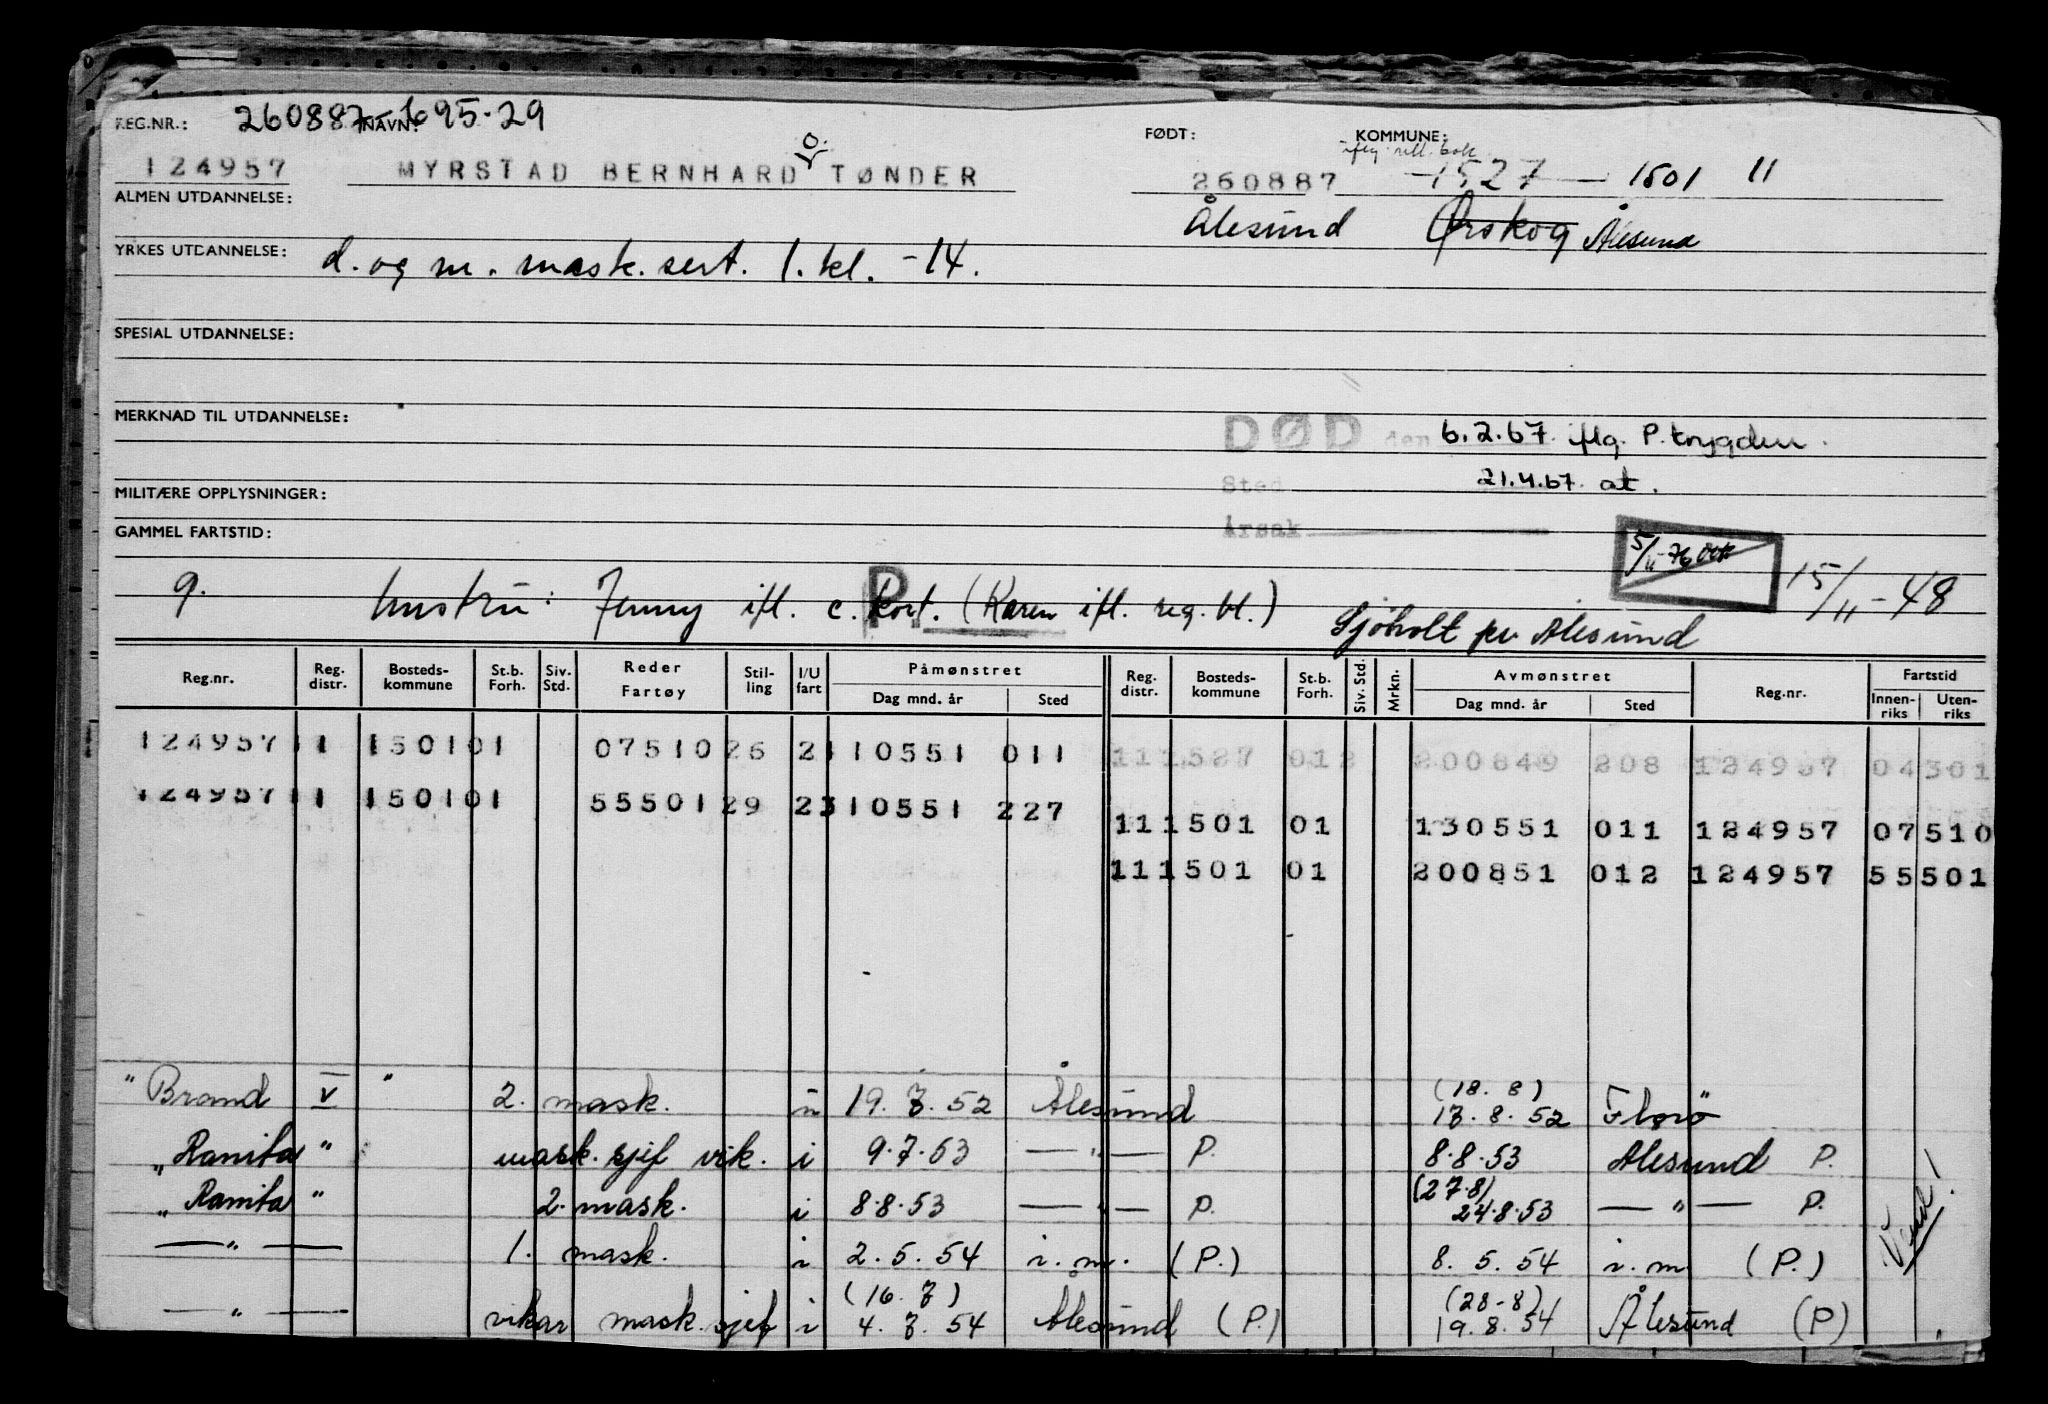 REG.NR.: 260887 NAVN: 695-29 FØDT: KOMMUNE:
iflg. rull. bok
124957 MYRSTAD BERNHARD O. TØNDER 260887 1527 — 1501 11
ALMEN UTDANNELSE: Ålesund Ørskog Ålesund
YRKES UTDANNELSE: d. og m. mask. sert. 1. kl. -14.
SPESIAL UTDANNELSE:
MERKNAD TIL UTDANNELSE: DØD den 6.2.67. iflg. P. trygden.
MILITÆRE OPPLYSNINGER: Sted 21.4.67. at.
GAMMEL FARTSTID: Årsak
5/11-76 15/11-48
g. hustru: Jenny ifl. c. kort. (Karen ifl. reg. bl.) P.
Sjøholt pr Ålesund
Reg.nr. Reg. distr. Bosteds-kommune St.b. Forh. Siv. Std. Reder Fartøy Stil-ling I/U fart Påmønstret Dag mnd. år Sted Reg. distr. Bosteds-kommune St.b. Forh. Siv. Std. Mrkn. Avmønstret Dag mnd. år Sted Reg.nr. Fartstid Innen-riks Uten-riks
124957 11 150101 07510 26 2 110551 011 111527 012 200849 208 124957 04301
124957 11 150101 55501 29 2 310551 227
111501 01 130551 011 124957 07510
111501 01 200851 012 124957 55501
" Brand V " 2. mask. u 19. 7. 52 Ålesund (18. 8) 17. 8. 52 Florø
" Ranita " mask. sjef vik. i 9.7.53 — " — P. 8.8.53 Ålesund P.
" Ranita " 2. mask. i 8.8.53 — " — P. (27.8) 24.8.53 — " — P.
— " — 1. mask. i 2. 5. 54 i. m. (P.) 8. 5. 54 i. m (P.)
— " — vikar mask. sjef i (16. 7) 4. 7. 54 Ålesund (P.) (28-8) 19. 8. 54 Ålesund (P)
Vend!